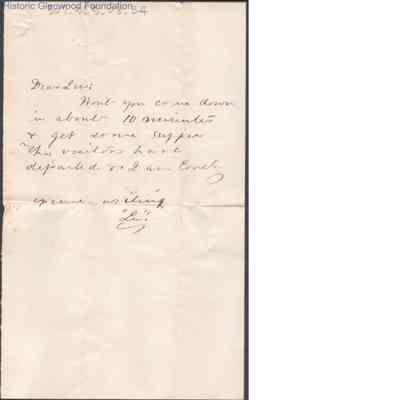 Historic Glenwood Foundation
Dear Lu:
Won't you come down
in about 10 minutes
& get some supper
The visitors have
departed & I am lonely
excuse writing
"Lu"